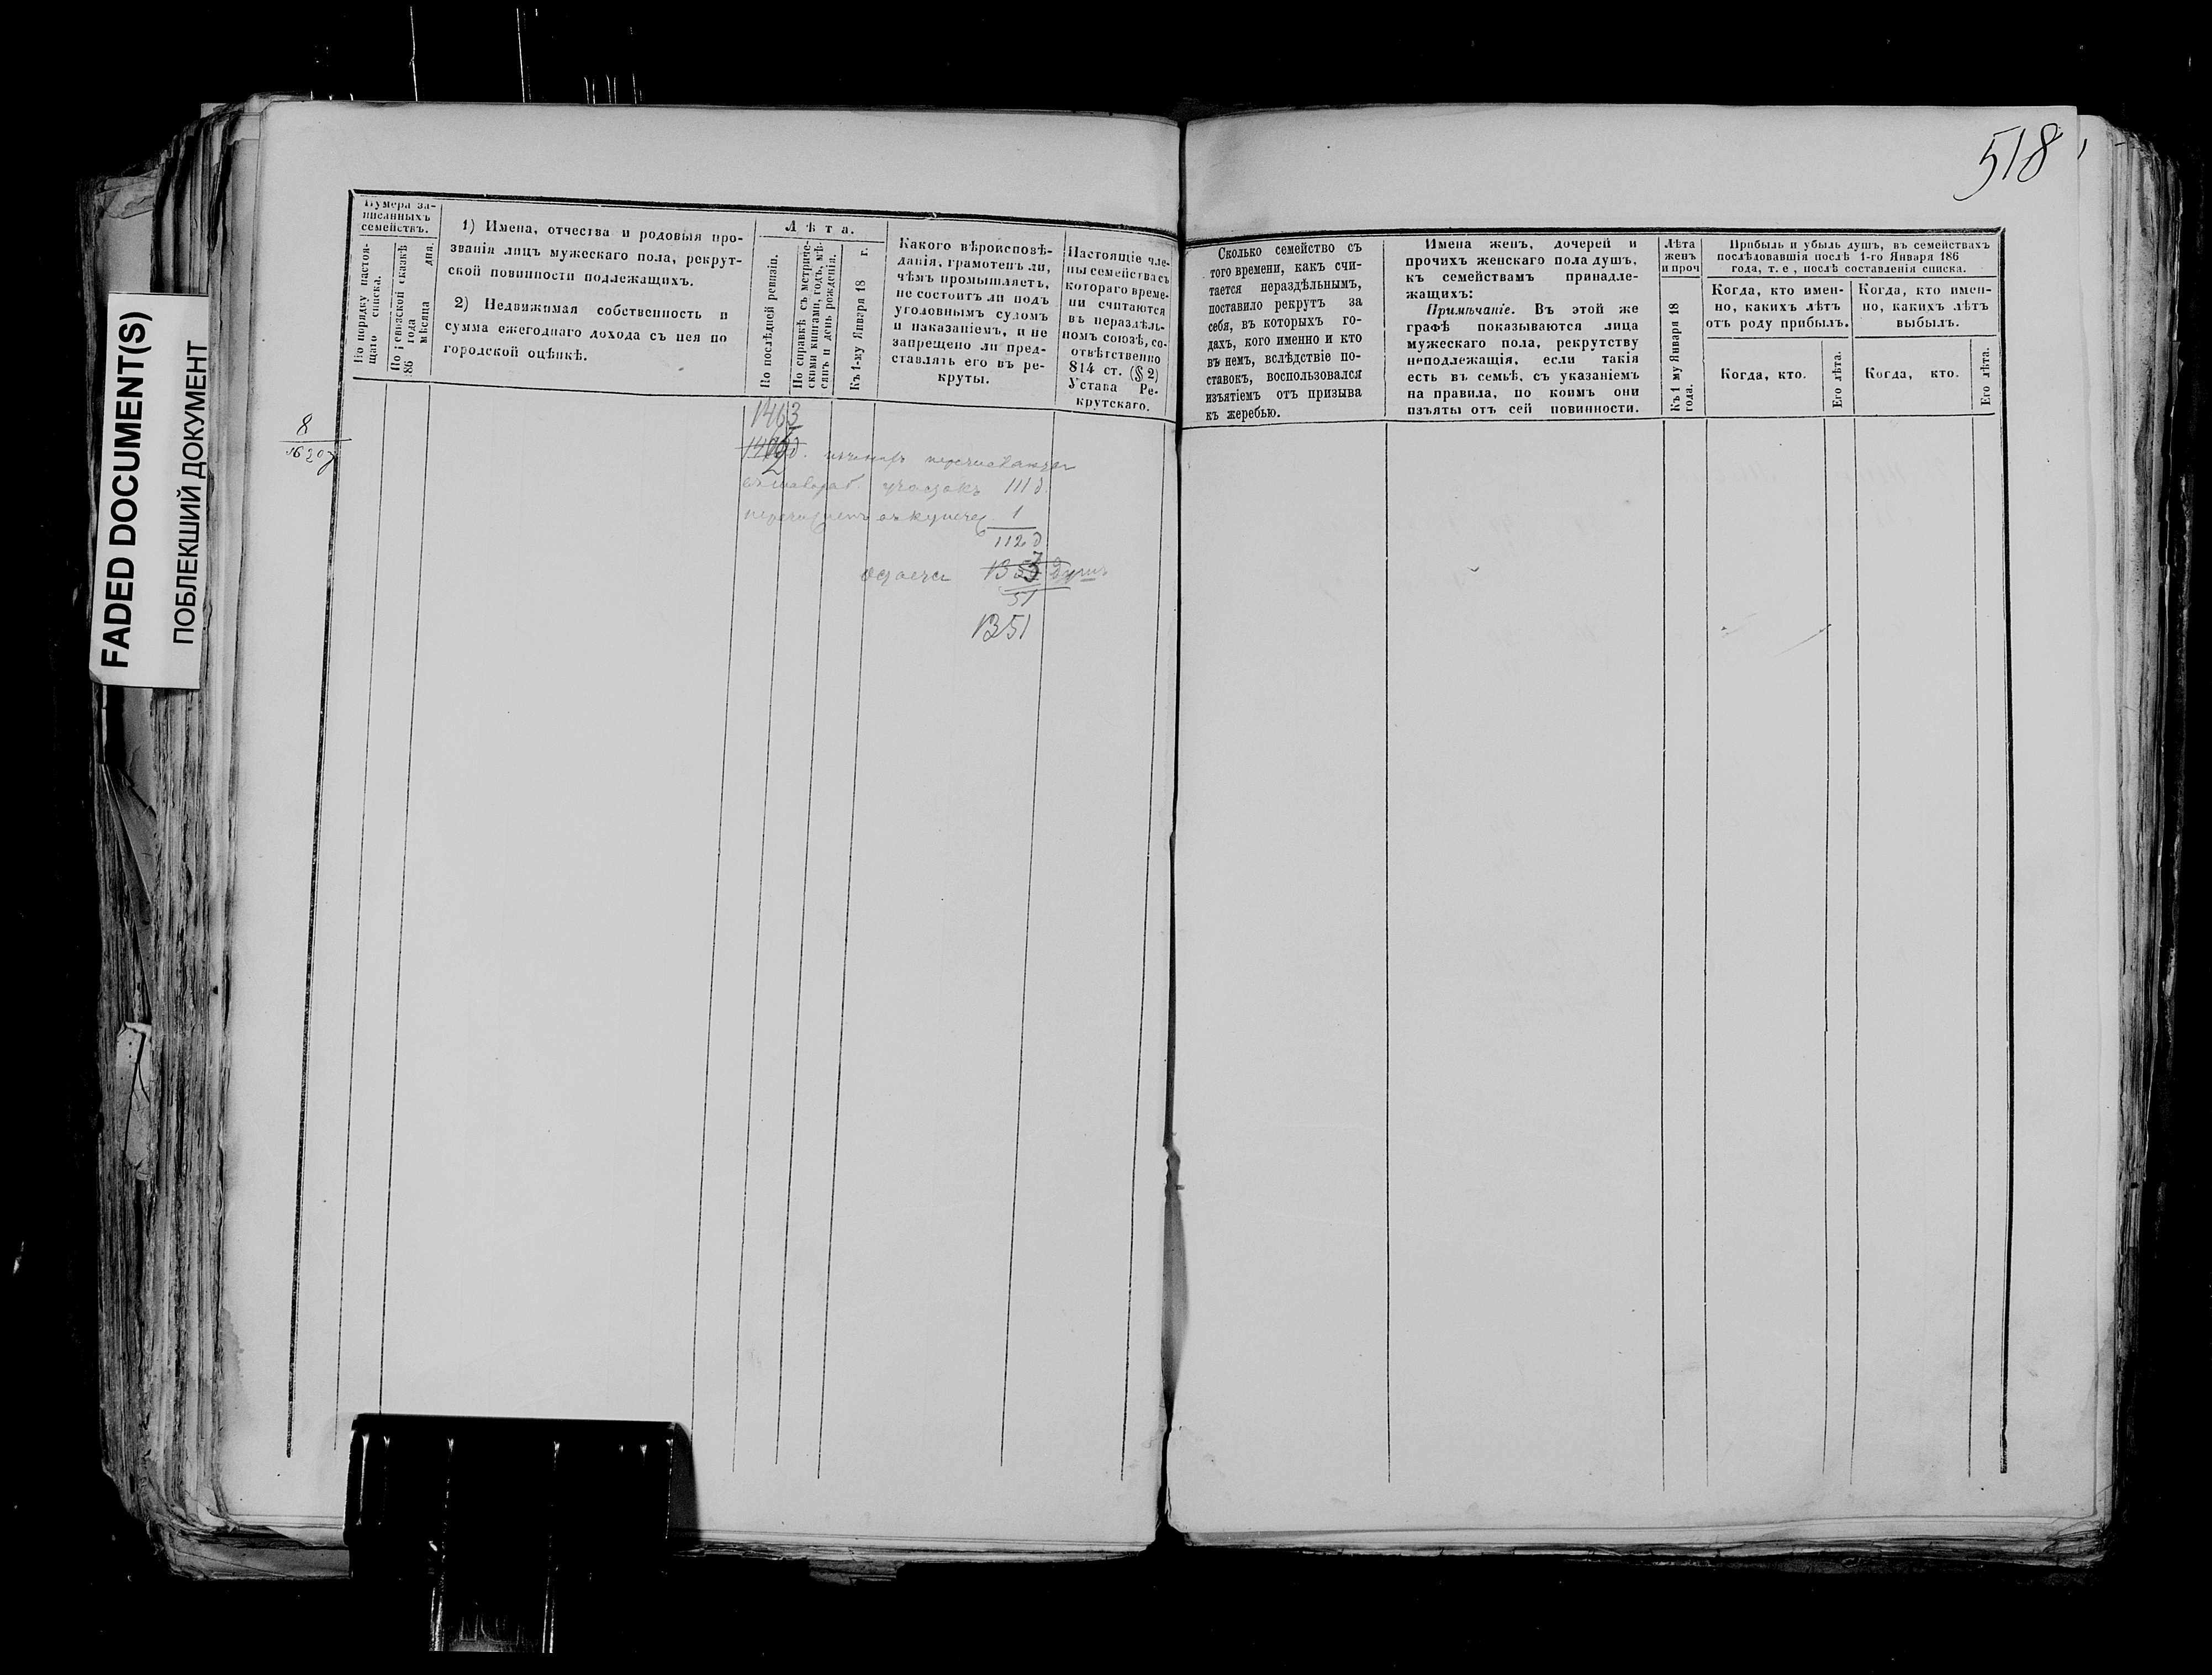 518
FADED DOCUMENT(S)
ПОБЛЕКШИЙ ДОКУМЕНТ
Нумера за-
писанныхъ
семействъ.
По порядку настоя-
щаго списка.
По ревизской сказкѣ
186 года
мѣсяца дня.
1) Имена, отчества и родовыя про-
званія лицъ мужескаго пола, рекрут-
ской повинности подлежащихъ.
2) Недвижимая собственность и
сумма ежегоднаго дохода съ нея по
городской оцѣнкѣ.
Лѣта.
По послѣдней ревизіи.
По справкѣ съ метриче-
скими книгами, годъ, мѣ-
сяцъ и день рожденія.
Къ 1-му Января 18 г.
Какого вѣроисповѣ-
данія, грамотенъ ли,
чѣмъ промышляетъ,
не состоитъ ли подъ
уголовнымъ судомъ
и наказаніемъ, и не
запрещено ли пред-
ставлять его въ ре-
круты.
Настоящіе чле-
ны семейства съ
котораго време-
ни считаются
въ нераздѣль-
номъ союзѣ, со-
отвѣтственно
814 ст. (§ 2)
Устава Ре-
крутскаго.
Сколько семейство съ
того времени, какъ счи-
тается нераздѣльнымъ,
поставило рекрутъ за
себя, въ которыхъ го-
дахъ, кого именно и кто
въ немъ, вслѣдствіе по-
ставокъ, воспользовался
изъятіемъ отъ призыва
къ жеребью.
Имена женъ, дочерей и
прочихъ женскаго пола душъ,
къ семействамъ принадле-
жащихъ:
Примѣчаніе. Въ этой же
графѣ показываются лица
мужескаго пола, рекрутству
неподлежащія, если такія
есть въ семьѣ, съ указаніемъ
на правила, по коимъ они
изъяты отъ сей повинности.
Лѣта
женъ
и проч
Къ 1 му Января 18
года.
Прибыль и убыль душъ, въ семействахъ
послѣдовавшія послѣ 1-го Января 186
года, т. е, послѣ составленія списка.
Когда, кто имен-
но, какихъ лѣтъ
отъ роду прибылъ.
Когда, кто.
Его лѣта.
Когда, кто имен-
но, какихъ лѣтъ
выбылъ.
Когда, кто.
Его лѣта.
8
1463
участокъ 111 д.
1
112 д
душъ
51
1351